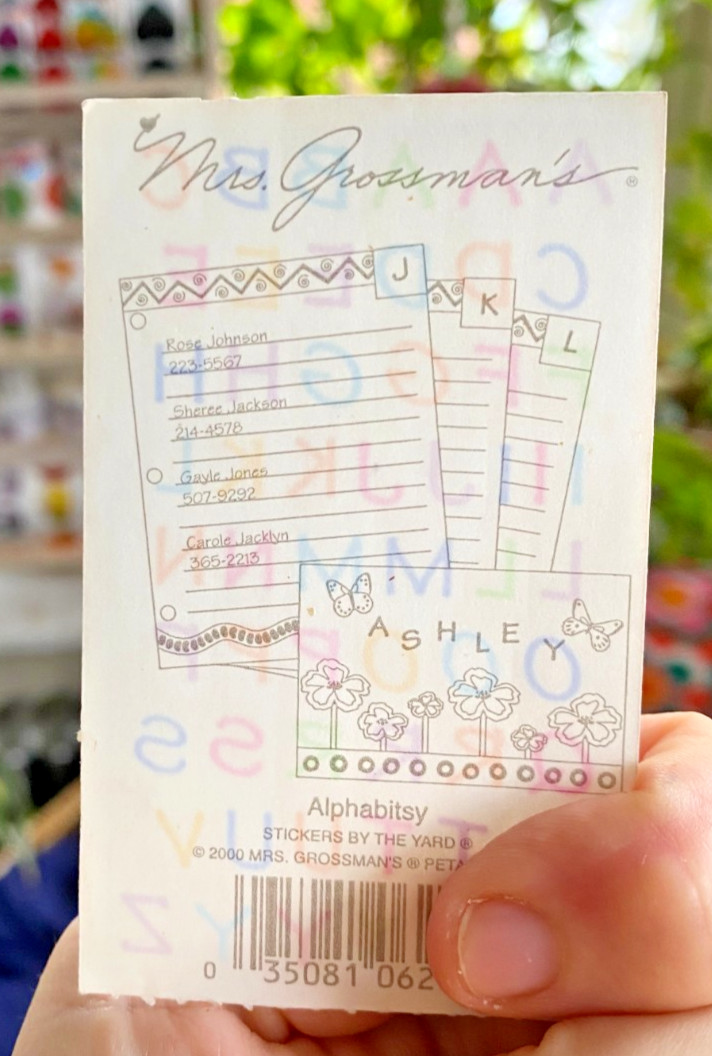 Mrs. Grossman's ®
J
K
L
Rose Johnson
223-5567
Sheree Jackson
214-4578
Gayle Jones
507-9292
Carole Jacklyn
365-2213
ASHLEY
Alphabitsy
STICKERS BY THE YARD ®
© 2000 MRS. GROSSMAN'S ® PETA
0 35081 062